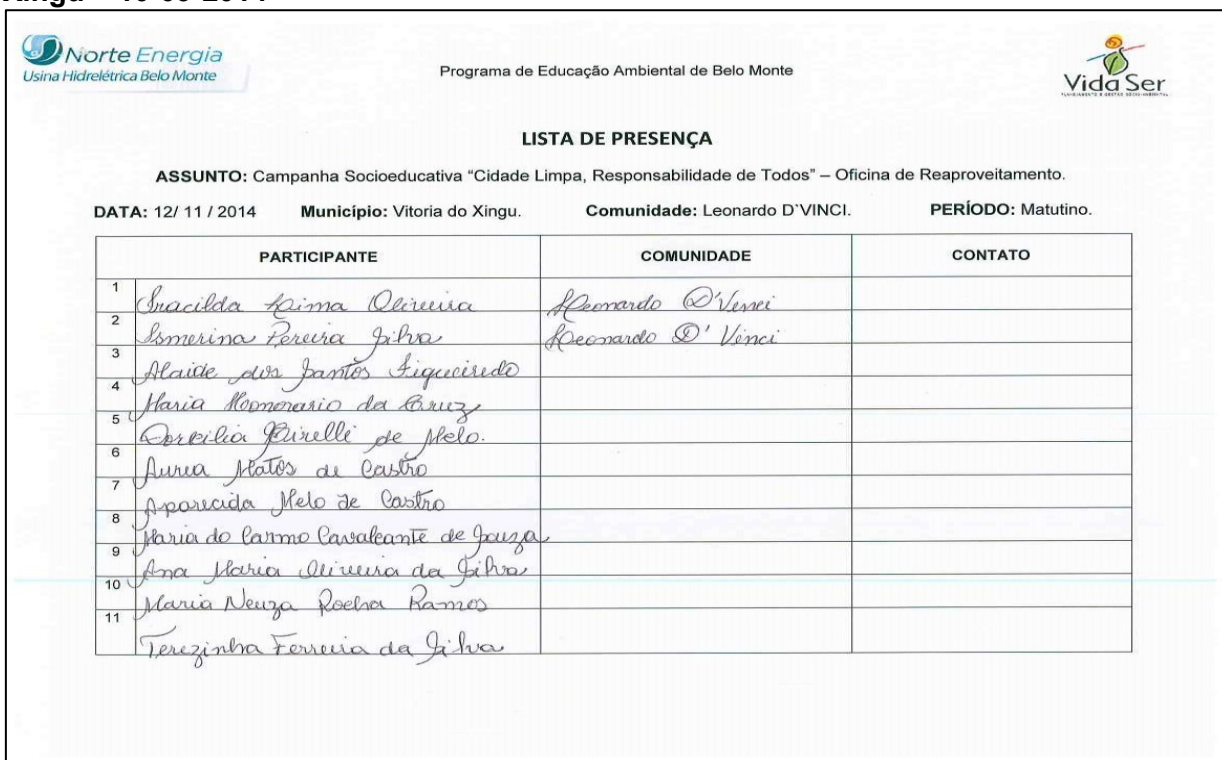 Norte Energia
Usina Hidrelétrica Belo Monte
Programa de Educação Ambiental de Belo Monte
Vida Ser
LISTA DE PRESENÇA
ASSUNTO: Campanha Socioeducativa “Cidade Limpa, Responsabilidade de Todos” – Oficina de Reaproveitamento.
DATA: 12/ 11 / 2014 Município: Vitoria do Xingu. Comunidade: Leonardo D`VINCI. PERÍODO: Matutino.
PARTICIPANTE COMUNIDADE CONTATO
1 Iracilda Lima Oliveira Leonardo D'Venci
2 Ismerina Pereira Silva Leonardo D' Vinci
3 Alaide dos Santos Figueiredo
4 Maria Honorario da Cruz
5 de Melo.
6 Aurea Matos de Castro
7 Aparecida Melo de Castro
8 Maria do Carmo Cavalcante de Souza
9 Ana Maria Oliveira da Silva
10 Maria Neuza Rocha Ramos
11 Terezinha Ferreira da Silva